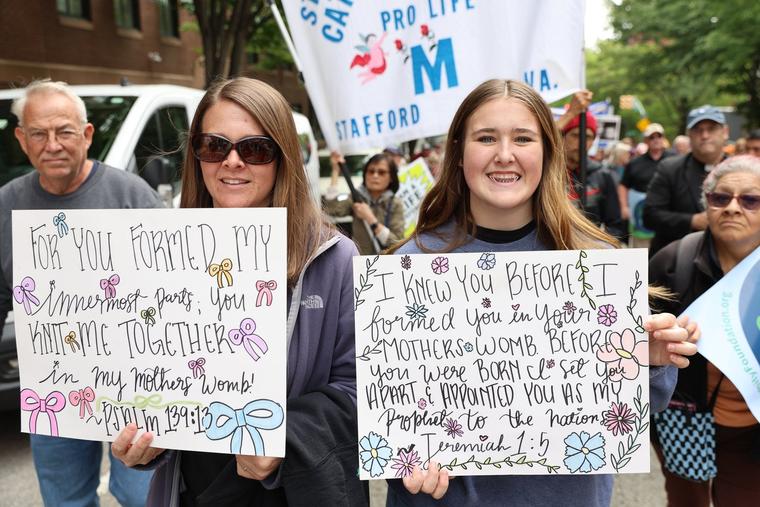 PRO LIFE
M
STAFFORD
VA.
FOR YOU FORMED MY
innermost parts; you
KNIT ME TOGETHER
in my mothers womb!
~PSALM 139:13
I KNEW YOU BEFORE I
formed you in your
MOTHERS WOMB. BEFORE
you were BORN I set you
APART & APPOINTED YOU AS MY
prophet to the nations
Jeremiah 1:5